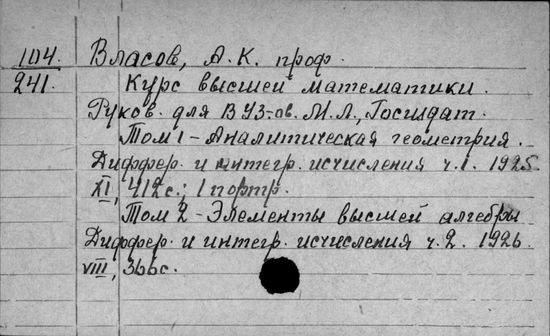 104. Власов, А. К. проф.
241. Курс высшей математики.
Руков. для ВУЗ-ов. М. Л., Госиздат.
Том 1 - Аналитическая геометрия.
Диффер. и интегр. исчисления ч. 1. 1925
XI, 412 с.; 1 портр.
Том 2 - Элементы высшей алгебры
Диффер. и интегр. исчисления ч. 2. 1926.
VIII, 366 с.